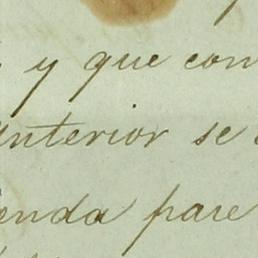 y que con
anterior se
enda pare